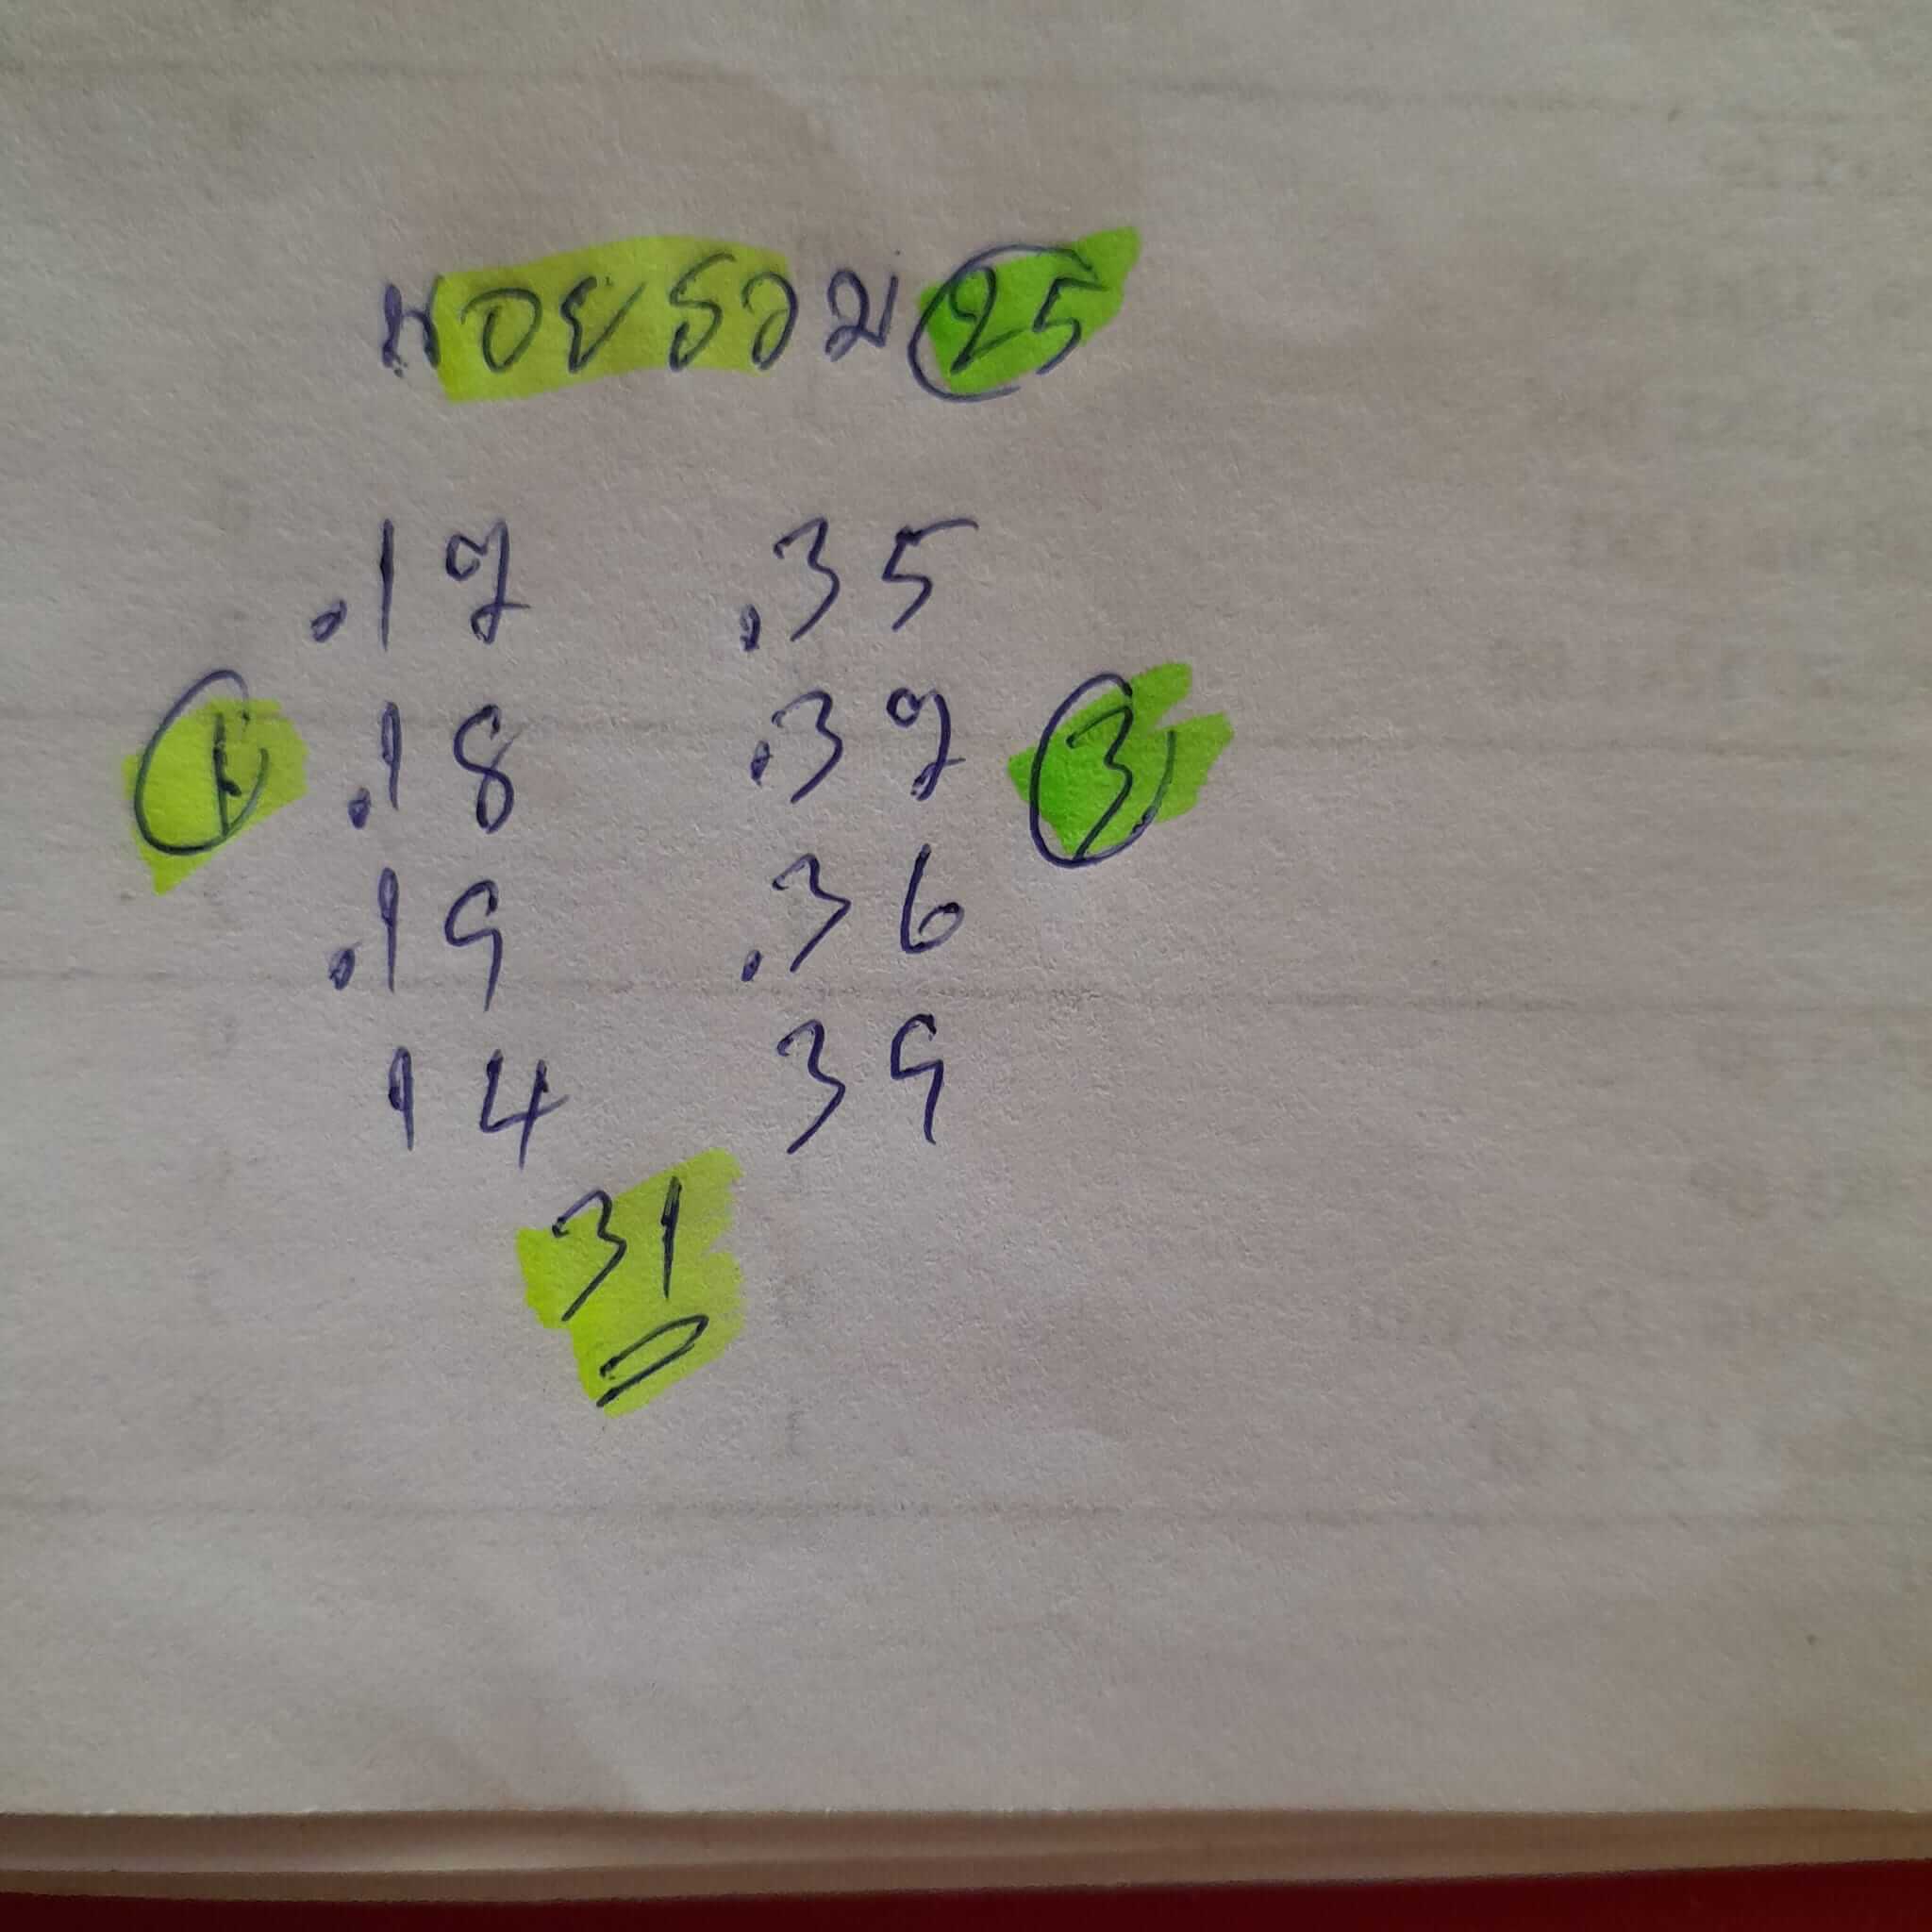 หอยรวม 25
.17 .35
1 .18 .37 3
.19 .36
14 39
31